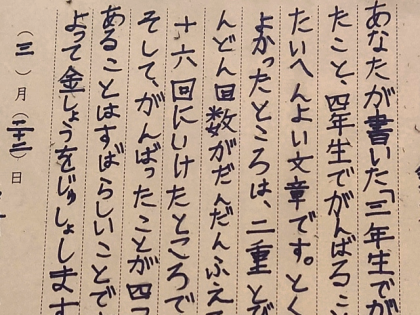 あなたが書いた「三年生でが
たこと、四年生でがんばるこ
たいへんよい文章です。とく
よかったところは、二重とび
んどん回数がだんだんふえ
十六回にいけたところで
そして、がんばったことが四
あることはすばらしいことで
よって金しょうをじゅしょします
（三）月（二十二）日